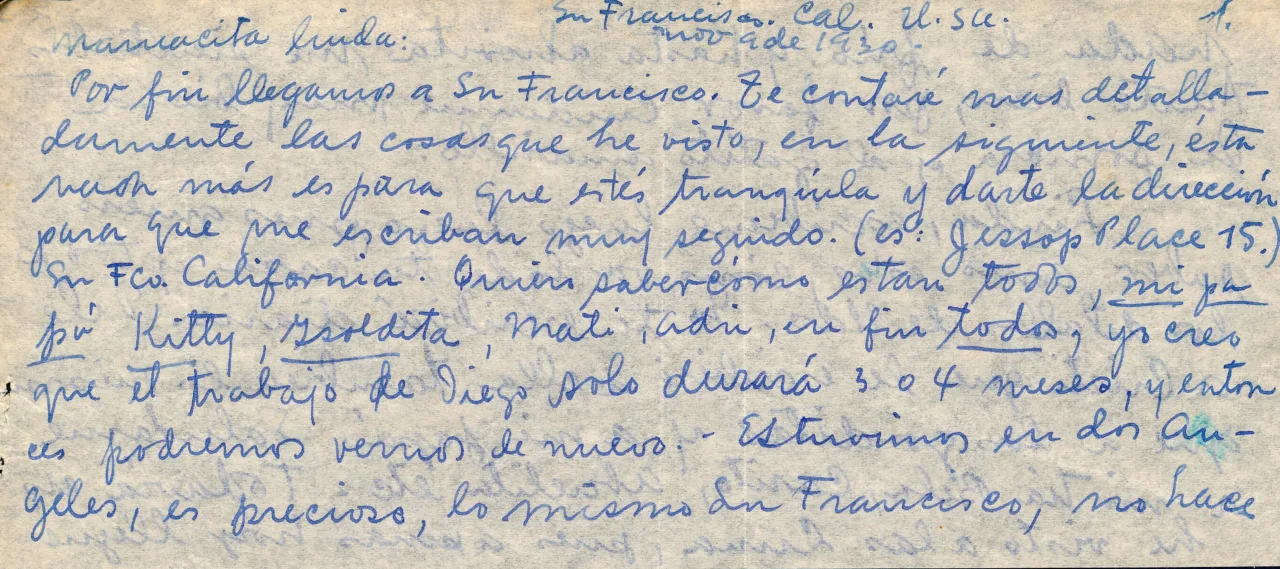 Sn Francisco. Cal. U.SA. 1.
nov 9 de 1930.
Mamacita linda:
Por fin llegamos a Sn Francisco. Te contaré mas detalla-
damente las cosas que he visto, en la siguiente, ésta
más es para que estés tranquila y darte la dirección
para que me escriban muy seguido. (es: Jessop Place 15.)
Sn Fco. California. Quién saber cómo estan todos, mi pa
pá Kitty, Isoldita, Mati, Adri, en fin todos, yo creo
que el trabajo de Diego solo durará 3 o 4 meses, y enton
ces podremos vernos de nuevo.- Estuvimos en Los An-
geles, es precioso, lo mismo Sn Francisco, no hace